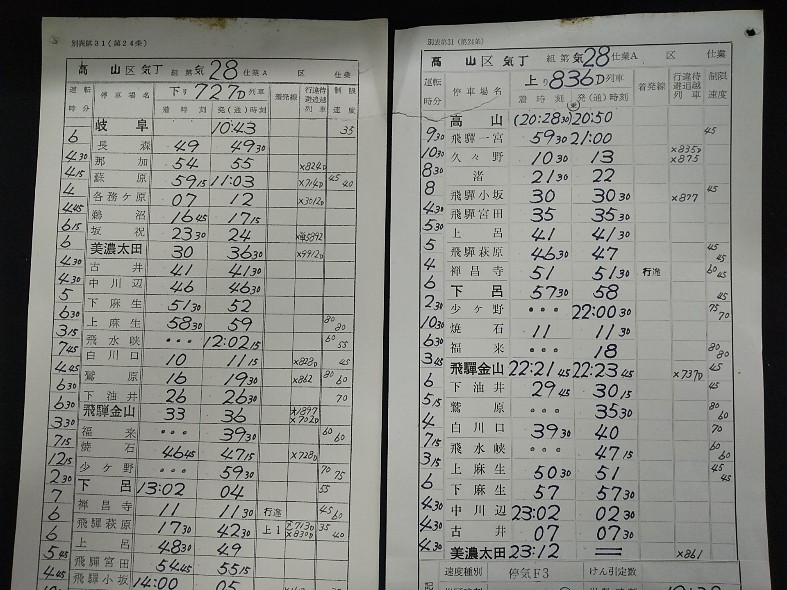 別表第31(第24条)
高 山 区 気丁 組第気28仕業A 区 仕業
運転時分 停車場名 下り727D列車 着時刻 発(通)時刻 着発線 行違待避追越列車 制限速度
岐阜 10:43 35
6
長森 49 49 30
4 30
那加 54 55 ×824D
4 15
蘇原 59 15 11:03 ×714D 45 40
4
各務ケ原 07 12 ×3012D
4 45
鵜沼 16 45 17 15
6 15
坂祝 23 30 24
6
美濃太田 30 36 30 ×9912D
4 30
古井 41 41 30
4 30
中川辺 46 46 30
5
下麻生 51 30 52
6 30
上麻生 58 30 59 80 80
3 15
飛水峡 ・・・ 12:02 15 60 55
7 45
白川口 10 11 15 ×828D 45
4 45
鷲原 16 19 30 ×862 80 60
6 30
下油井 26 26 30 70
6 30
飛騨金山 33 36 ×1897 ×702D
3 30
福来 ・・・ 39 30 60 60
7 15
焼石 46 45 47 15 ×728D
12 15
少ケ野 ・・・ 59 30 70 75
2 30
下呂 13:02 04 55
7
禅昌寺 11 11 30 行違 45 60
6
飛騨萩原 17 30 42 30 上1 ×830D 35 40
6
上呂 48 30 49
5 45
飛騨宮田 54 45 55 15
4 45
飛騨小坂 14:00 05
別表第31(第24条)
高 山 区 気丁 組第気28仕業A 区 仕業
運転時分 停車場名 上り836D列車 着時刻 発(通)時刻 着発線 行違待避追越列車 制限速度
高山 (20:28 30) 20:50
9 30
飛騨一宮 59 30 21:00 45
10 30
久々野 10 30 13 ×835D ×875
8 30
渚 21 30 22
8
飛騨小坂 30 30 30 ×877 45
4 30
飛騨宮田 35 35 30
5 30
上呂 41 41 30
5
飛騨萩原 46 30 47 45 45
4
禅昌寺 51 51 30 行違 60 45
6
下呂 57 30 58 45
2 30
少ケ野 ・・・ 22:00 30 75 70
10 30
焼石 11 11 30
6 30
福来 ・・・ 18 80 80
3 45
飛騨金山 22:21 45 22:23 45 ×737D 45
6
下油井 29 45 30 15
5 15
鷲原 ・・・ 35 30 80 60
4
白川口 39 30 40 70
7 15
飛水峡 ・・・ 47 15 60 60
3 15
上麻生 50 30 51 45 45
6
下麻生 57 57 30
4 30
中川辺 23:02 02 30
4 30
古井 07 07 30
4 30
美濃太田 23:12 = ×861
速度種別 停気F3 けん引定数